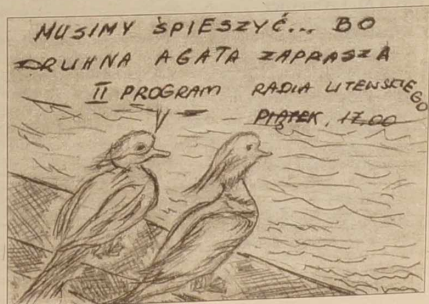 MUSIMY ŚPIESZYĆ... BO
DRUHNA AGATA ZAPRASZA
II PROGRAM RADIA LITEWSKIEGO
PIĄTEK, 17.00